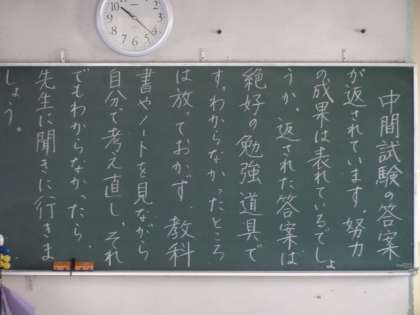 中間試験の答案
が返されています。努力
の成果は表れているでしょ
うか。返された答案は
絶好の勉強道具で
す。わからなかったところ
は放っておかず、教科
書やノートを見ながら
自分で考え直し、それ
でもわからなかったら、
先生に聞きに行きま
しょう。